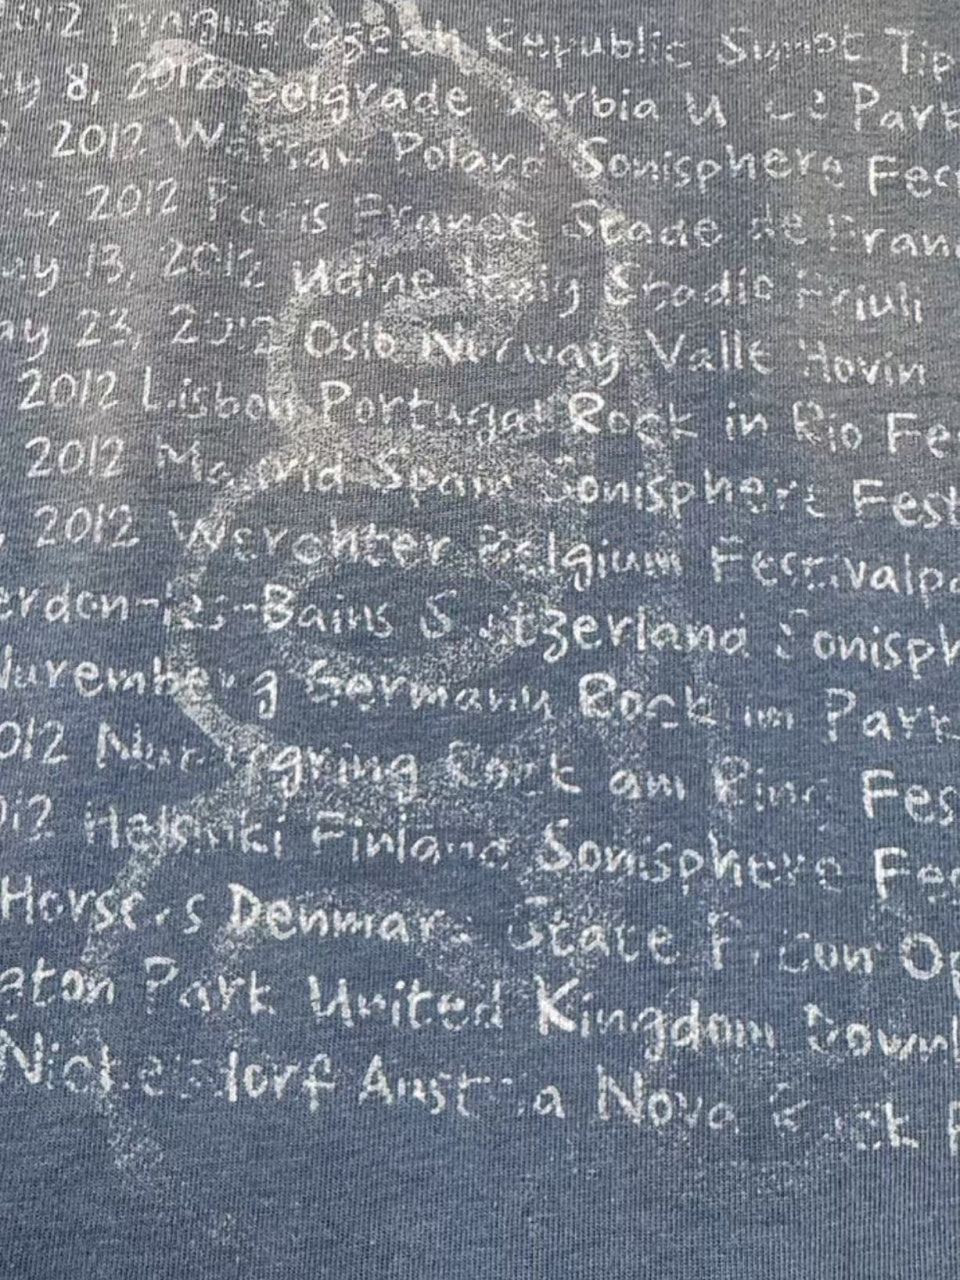 2012 Prague Czech Republic Synot Tip
y 8, 2012 Belgrade Serbia U Park
2012 Warsaw Poland Sonisphere Fes
2012 Paris France Stade de Fran
ay 13, 2012 Udine Italy Stadio Friuli
ay 23, 2012 Oslo Norway Valle Hovin
2012 Lisbon Portugal Rock in Rio Fe
2012 Madrid Spain Sonisphere Fest
, 2012 Werchter Belgium Festivalpa
erdon-les-Bains Switzerland Sonisph
Nuremberg Germany Rock im Park
012 Nurburgring Rock am Ring Fes
012 Helsinki Finland Sonisphere Fes
Horsens Denmark State Prison Op
ngton Park United Kingdom Downl
Nickelsdorf Austria Nova Rock F